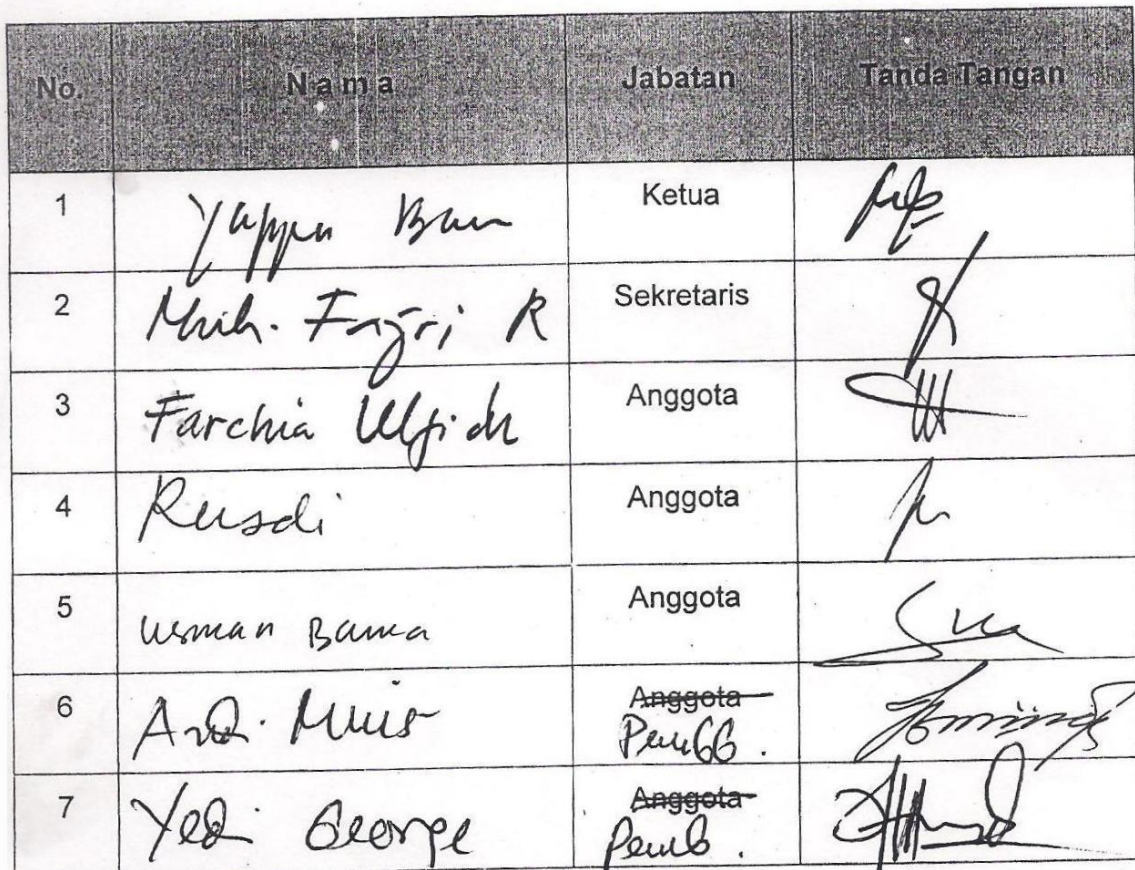 No. Nama Jabatan Tanda Tangan
1 Yappu Bau Ketua
2 Muh. Fajri R Sekretaris
3 Farchia Ulfiah Anggota
4 Rusdi Anggota
5 Usman Bauwa Anggota
6 Muis Anggota
7 Yedi George Anggota
Pemb.